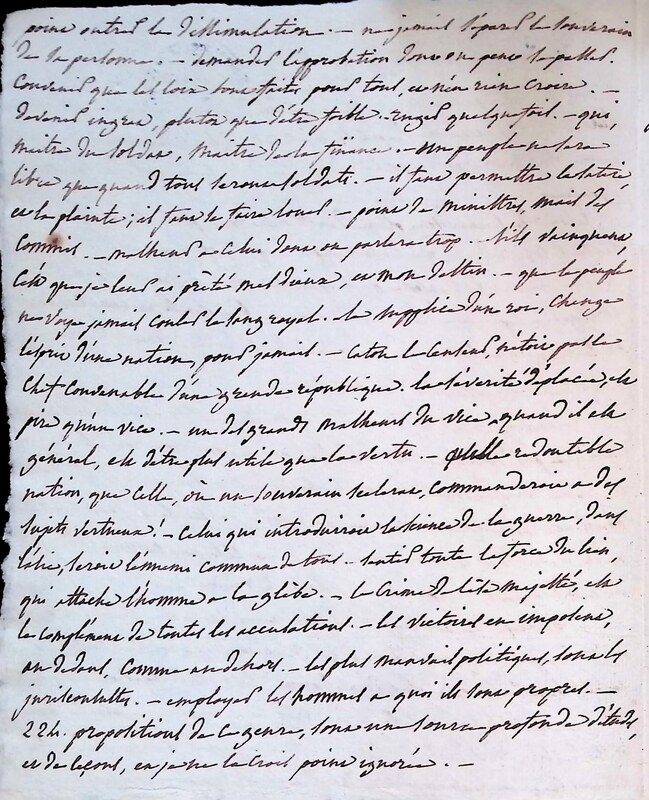 point outrer la dissimulation. — ne jamais séparer le souverain
de sa personne. — demander l'approbation dont on peut se passer.
Convenir que les loix sont faites pour tous, et n'en rien croire. —
devenir ingrat, plutot que d'être foible. rugir quelquefois. — qui,
maitre du soldat, maitre de la finance. — un peuple ne sera
libre que quand tous seront soldats. — il faut permettre la satire,
et la plainte; il faut se faire louer. — point de ministres, mais des
Commis. — malheur a celui dont on parlera trop. s'ils vainquent,
C'est que je leur ai prêté mes dieux, et mon destin. — que le peuple
ne voye jamais couler le sang royal. le supplice d'un roi, change
l'esprit d'une nation, pour jamais. — caton le Censeur, n'étoit pas le
chef convenable d'une grande république. la sévérité déplacée, est
pire qu'un vice. — un des grands malheurs du vice, quand il est
général, est d'être plus utile que la vertu. — quelle redoutable
nation, que celle, où un souverain scelerat, commanderoit a des
sujets vertueux! — celui qui introduiroit la science de la guerre, dans
l'asie, seroit l'ennemi commun de tous. — sentez toute la force du lien,
qui attache l'homme a la glèbe. — le Crime de lèse majesté, est
le complément de toutes les accusations. — les victoires en imposent,
au dedans, comme au dehors. — les plus mauvais politiques, sont les
jurisconsultes. — employer les hommes a quoi ils sont propres. —
224. propositions de ce genre, sont une source profonde d'études,
et de leçons, et je ne la crois point ignorée. —